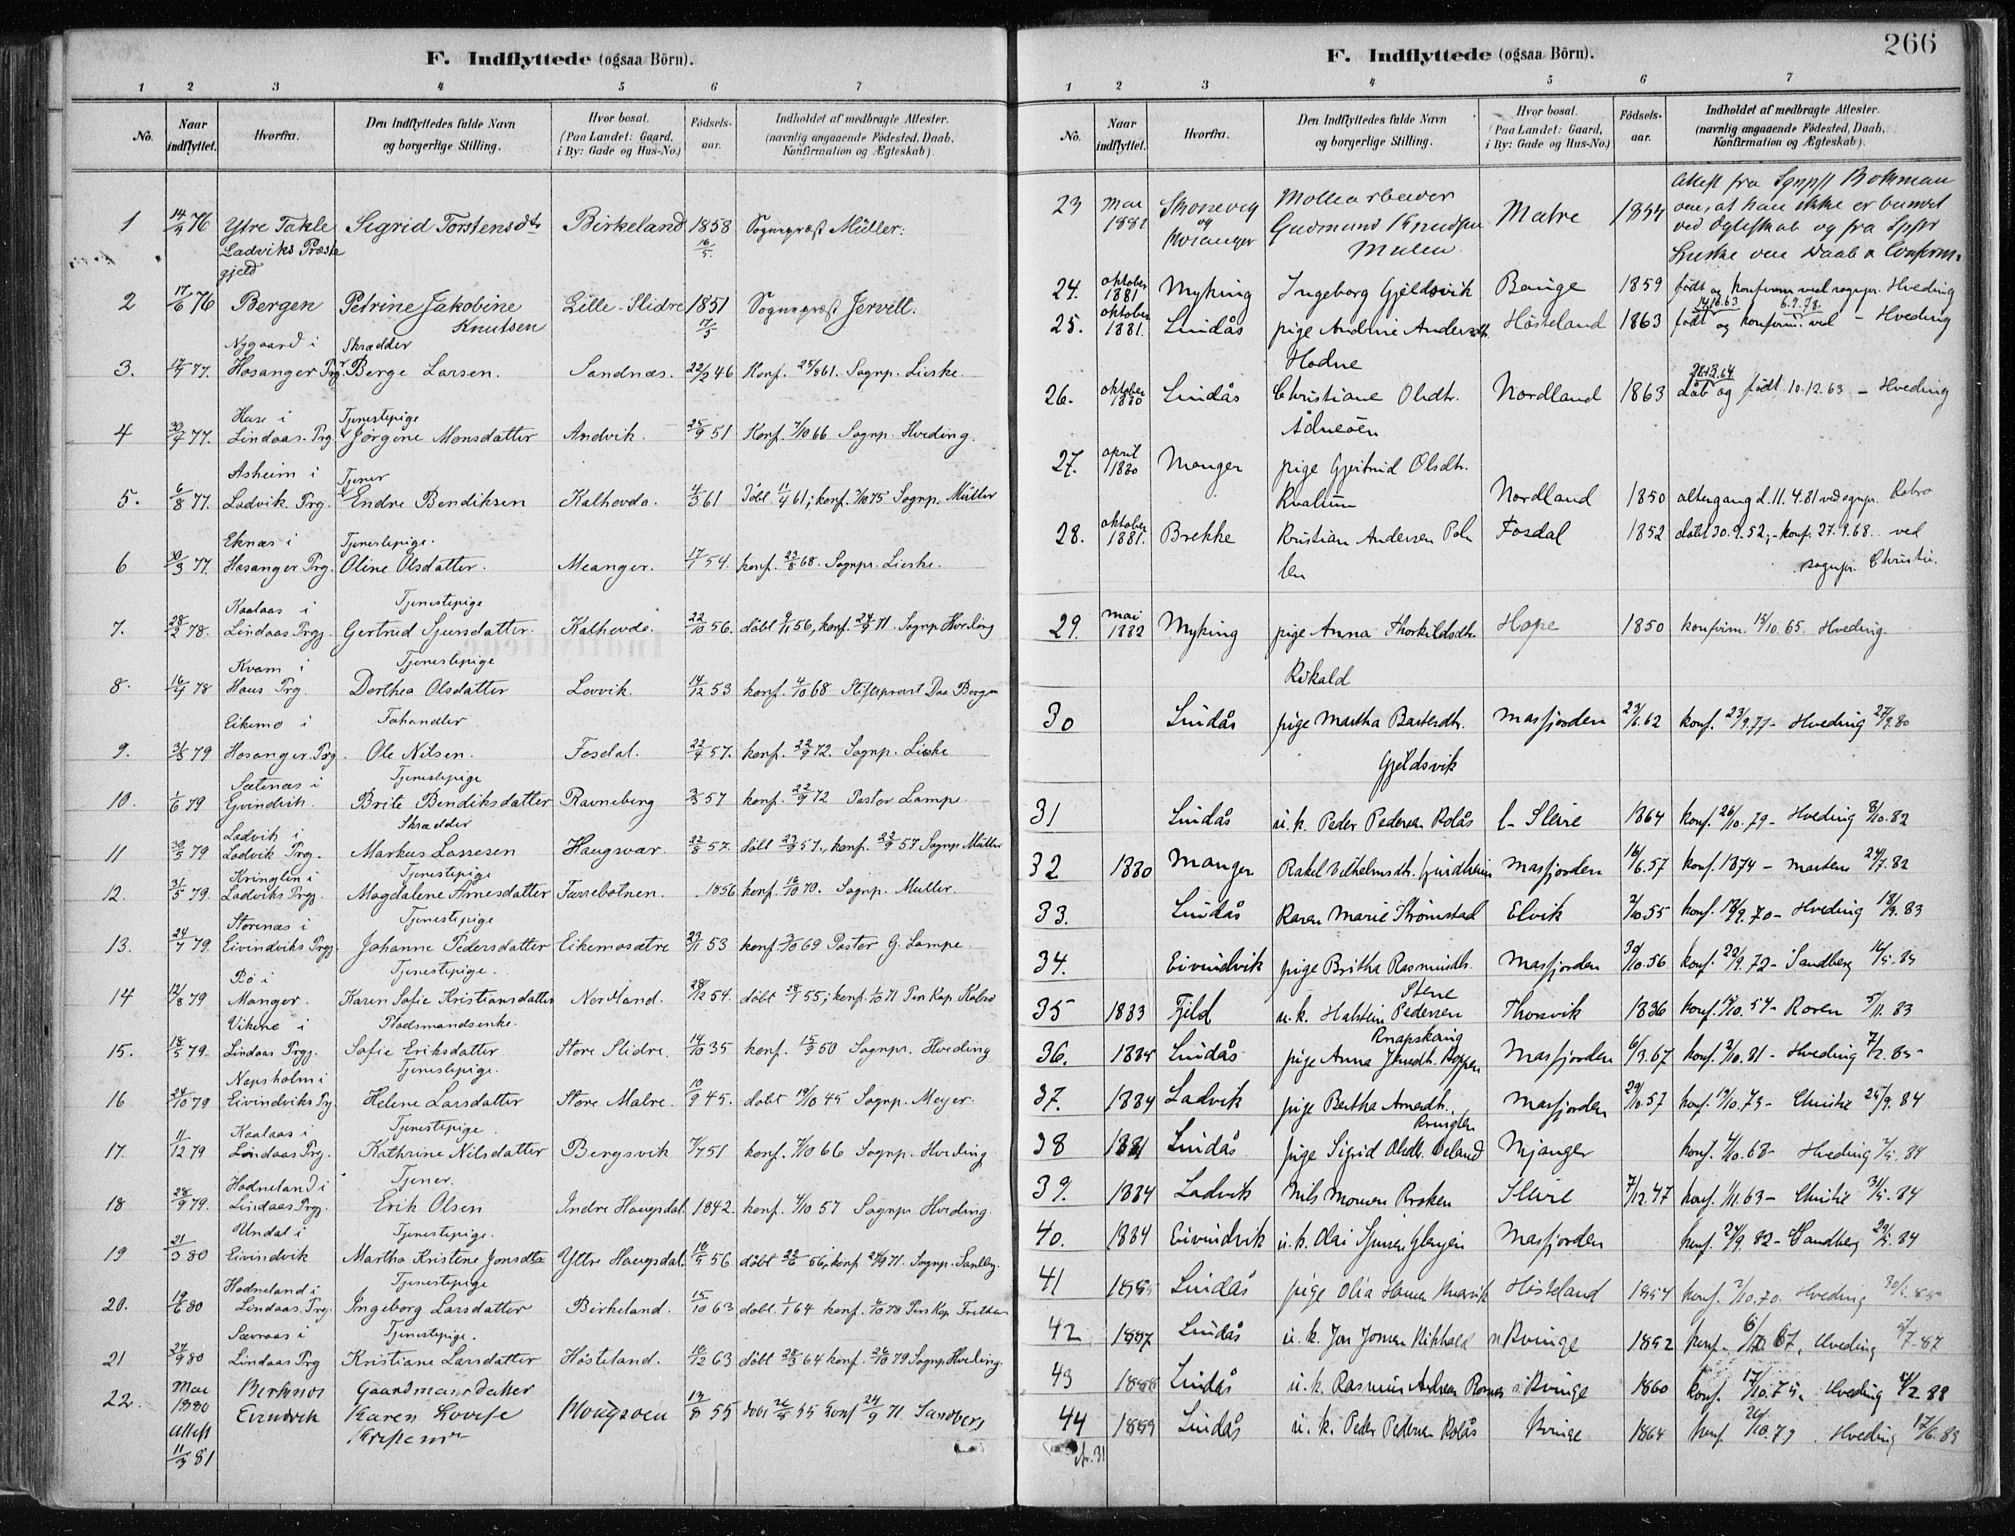 F. Indflyttede (ogsaa Börn).
1 2 3 4 5 6 7
No. Naar indflyttet. Hvorfra. Den Indflyttedes fulde Navn og borgerlige Stilling. Hvor bosat. (Paa Landet: Gaard, i By: Gade og Hus-No.) Fødsels-aar. Indholdet af medbragte Attester. (navnlig angaaende Fødested, Daab, Konfirmation og Ægteskab).
1 14/4 76 Ytre Takle Sigrid Torstensdtr Birkeland 1858 Sognepræst Müller.
Ladviks Præste
gjeld 16/5
2 17/6 76 Bergen Petrine Jakobine Lille-Slidre 1851 Sognepræst Jervell.
Knutsen 17/5
Nygaard i Skrædder
3. 77. Hosanger Prg. Berge Larsen. Sandnæs. 22/2 46 Konf. 25/8 61. Sognp. Lieske
Huse i Tjenestepige
4 30/7 77. Lindaas Prg. Jørgine Monsdatter Andvik. 25/9 51 Konf. 7/10 66 Sognp. Hveding.
Asheim i Tjener
5. 6/8 77. Ladvik Prg. Endre Bendiksen Kalhovde. 4/3 61 Døbt 11/4 61; konf. 3/10 75 Sognp. Müller
Eknæs i Tjenestepige.
6 30/3 77. Hosanger Prg. Oline Olsdatter. Meanger. 17/7 54. konf. 23/8 68. Sognpr. Lieske.
Kaalaas i Tjenestepige
7. 28/2 78. Lindaas Prgj. Gertrud Sjursdatter. Kalhovde. 22/10 56. døbt 9/11 56, konf. 24/9 71. Sognp. Hveding
Kvam i Tjenestepige
8. 16/4 78 Haus Prg. Dorthea Olsdatter Lovvik. 14/12 53 konf. 4/10 68 Stiftsprovst Daa Bergen
Eikemo i Fahandler
9. 3/5 79 Hosanger Prg. Ole Nilsen. Fosdal. 22/4 57. konf. 22/9 72. Sognp. Lieske
Sætenæs i Tjenestepige
10. 1/6 79 Ejvindvik. Brite Bendiksdatter Ravneberg 3/5 57 konf. 22/9 72 Pastor Lampe.
Ladvik i Skrædder
11 30/5 79 Ladvik Prg. Markus Lassesen Haugsvær. 22/8 57. døbt 23/9 57., konf. 22/9 57 Sognp Müller
Kringlen i Tjenestepige
12. 31/5 79. Ladviks Prgj. Magdalene Arnesdatter Furrebotnen. 1856 konf. 16/10 70. Sognp. Müller.
Storenæs i Tjenestepige
13. 24/7 79. Eivindviks Prgj. Johanne Pedersdatter Eikemosætre 23/11 53 konf. 3/10 69 Pastor G. Lampe.
Bø i Tjenestepige.
14 12/8 79 Manger. Karen Sofie Kristiansdatter Nordland. 28/12 54. døbt 28/1 55; konf. 1/10 71 Pers Kap Kobro
Vikene i Pladsmandsenke.
15. 18/5 79. Lindaas Prgj. Sofie Eriksdatter Store Slidre. 14/10 35 konf. 15/9 50 Sognpr. Hveding
Næpsholm i Tjenestepige.
16 24/10 79 Eivindviks Prg. Helene Larsdatter Store Matre. 10/9 45. døbt 19/10 45 Sognp. Meyer.
Kaalaas i Tjenestepige.
17. 11/12 79 Lindaas Prg. Kathrine Nilsdatter Bergsvik 7/7 51 konf. 7/10 66 Sognp. Hveding.
Hodneland i Tjener.
18 28/9 79. Lindaas Prgj. Erik Olsen Indre Haugsdal. 1842. konf. 4/10 57 Sognpr Hveding.
Undal i Tjenestepige.
19 21/3 80 Eivindvik Martha Kristine Jonsdtr Yttre Haugsdal. 10/5 56 døbt 22/6 56, konf 24/9 71. Sognp. Sandberg.
Hodneland i Tjenestepige
20. 19/6 80 Lindaas Prg. Ingeborg Larsdatter Birkeland. 15/10 63 døbt 1/1 64 konf. 6/10 78 Pers Kap
Sævraas i Tjenestepige.
21 27/9 80 Lindaas Prg Kristiane Larsdatter Høsteland. 10/12 63 døbt 28/3 64 konf. 26/10 79 Sognp. Hveding.
22. Mai Birknes Gaardmansdatter
1880 Evindvik Karen Lovise 13/8 55 døbt 26/8 55 konf 24/9 71. Sandberg
attest
11/3 81
266
F. Indflyttede (ogsaa Börn).
1 2 3 4 5 6 7
No. Naar indflyttet. Hvorfra. Den Indflyttedes fulde Navn og borgerlige Stilling. Hvor bosat. (Paa Landet: Gaard, i By: Gade og Hus-No.) Fødsels-aar. Indholdet af medbragte Attester. (navnlig angaaende Fødested, Daab, Konfirmation og Ægteskab).
23 Mai Skonevig Møllearbeider Matre 1854 Attest fra Sgnpst
1881 og Gudmund Knudsen om, at han ikke er bunden
Hosanger ved Ægteskab og fra Sgpr
Lieske om Daab o Confirm.
24. oktober 1881 Myking Ingeborg Gjeldsvik Bauge 1859 født og konfirm. ved sognpr. Hveding
14.10.63 6.9.78.
25. oktober 1881. Lindås pige Andrine Andersdtr. Høsteland 1863 født og konfirm. ved - Hveding
Hodne
26. oktober 1880 Lindås Christiane Olsdtr. Nordland 1863 dåb og født 10.12.63 - Hveding
Ådneøen
27. april 1880 Manger pige Gjertrud Olsdtr.
Kvalum Nordland 1850 altergang d. 11.4.81 ved sognpr. Kobro
28. oktober 1881. Brekke Kristian Andersen Fosdal 1852 døbt 30.9.52, - konf. 27.9.68. ved
sognpr. Christie.
29. mai 1882 Myking pige Anna Thorkildsdtr. Hope 1850 konfirm. 15/10 65. Hveding
Rikald
30 Lindås pige Martha Bastesdtr. Masfjorden 23/6. 62 konf. 23/9. 77 - Hveding 27/9. 80
Gjeldsvik
31 Lindås u.k. Peder Pedersen Kolås l- Sleire 1864 konf. 26/10. 79 - Hveding 8/10. 82
32 1880 Manger Rakel Vilhelmsdtr. Masfjorden 16/6. 57 konf. 1874 - Martens 24/7. 82
33. Lindås Karen Marie Strømstad Elvik 2/10. 55 konf. 18/9. 70 - Hveding 18/9. 83
34. Eivindvik pige Britha Rasmusdtr. Masfjorden 30/10. 56 konf. 22/9. 72 - Sandberg
Stene
35 1883 Fjeld u.k. Halstein Pedersen Thorsvik 1836 konf. 54 - Koren 5/11. 83
Knapskaug
36. Lindås pige Anna Masfjorden 6/3. 67 konf. 2/10. 81 - Hveding
37. 1884 Ladvik pige Bertha Arnesdtr. Masfjorden 29/10. 57 konf. - Christie 25/9. 84
Kringlen
38 1881 Lindås pige Sigrid Olsdtr. Veland Mjanger konf. 4/10. 68 - Hveding 84
39. 1884 Ladvik Nils Monsen Kroken Sleire 7/12. 47 konf. 1/11. 63 - Christie 84
40. 1884 Eivindvik u.k. Olai Masfjorden konf. 24/9. 82 - Sandberg 84
41 Lindås pige Olia Hansen Høsteland 1854 konf. 2/10. 70. Hveding
42 1887 Lindås u.k. Jon Jonsen n. Kvinge 1852 konf. 67, Hveding 87
43 1888 Lindås u.k. Rasmus Andreas n. Kvinge 1860 konf. 17/10. 75. Hveding 88
44 1889 Lindås u.k. Peder Pedersen Kolås Kvinge 1864 konf. 26/10. 79. Hveding 17/6. 89
str. 31